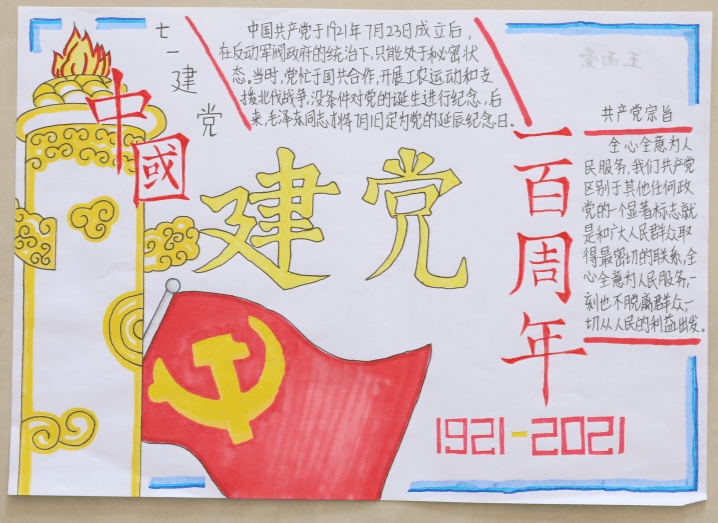 七一建党
中国共产党于1921年7月23日成立后,
在反动军阀政府的统治下,只能处于秘密状
态。当时,党忙于国共合作,开展工农运动和支
援北伐战争,没条件对党的诞生进行纪念,后
来,毛泽东同志才将7月1日定为党的诞辰纪念日。
中國
建党
一百周年
1921-2021
共产党宗旨
全心全意为人
民服务,我们共产党
区别于其他任何政
党的一个显著标志就
是和广大人民群众取
得最密切的联系,全
心全意为人民服务,一
刻也不脱离群众,一
切从人民的利益出发。